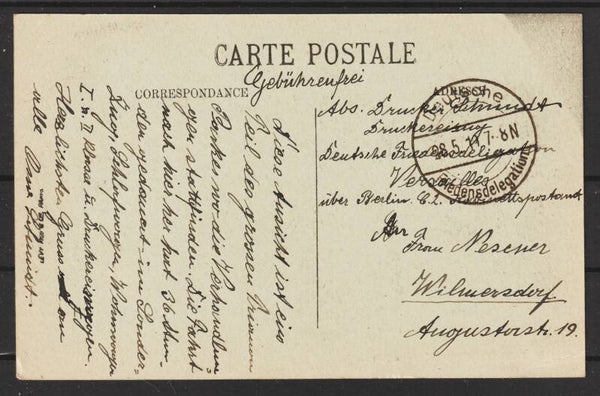 CARTE POSTALE
Gebührenfrei
CORRESPONDANCE
ADRESSE
Deutsche
28.5.19. 7-8N
Friedensdelegation
Abs. Drucker Schmidt
Druckereizug
Deutsche Friedensdelegation
Versailles
über Berlin C.2.
An
Frau Nesener
Wilmersdorf
Augustastr. 19.
Diese Ansicht ist ein
Teil des grossen Trianon
Parkes wo die Verhandlun
gen stattfinden. Die Fahrt
nach hier hat 36 Stun
den gedauert im Sonder
zug, Schlafwagen, Wohnwagen
I. u. II Klasse u. Druckereiwagen.
Herzlichsten Gruss an
alle
Schmidt.